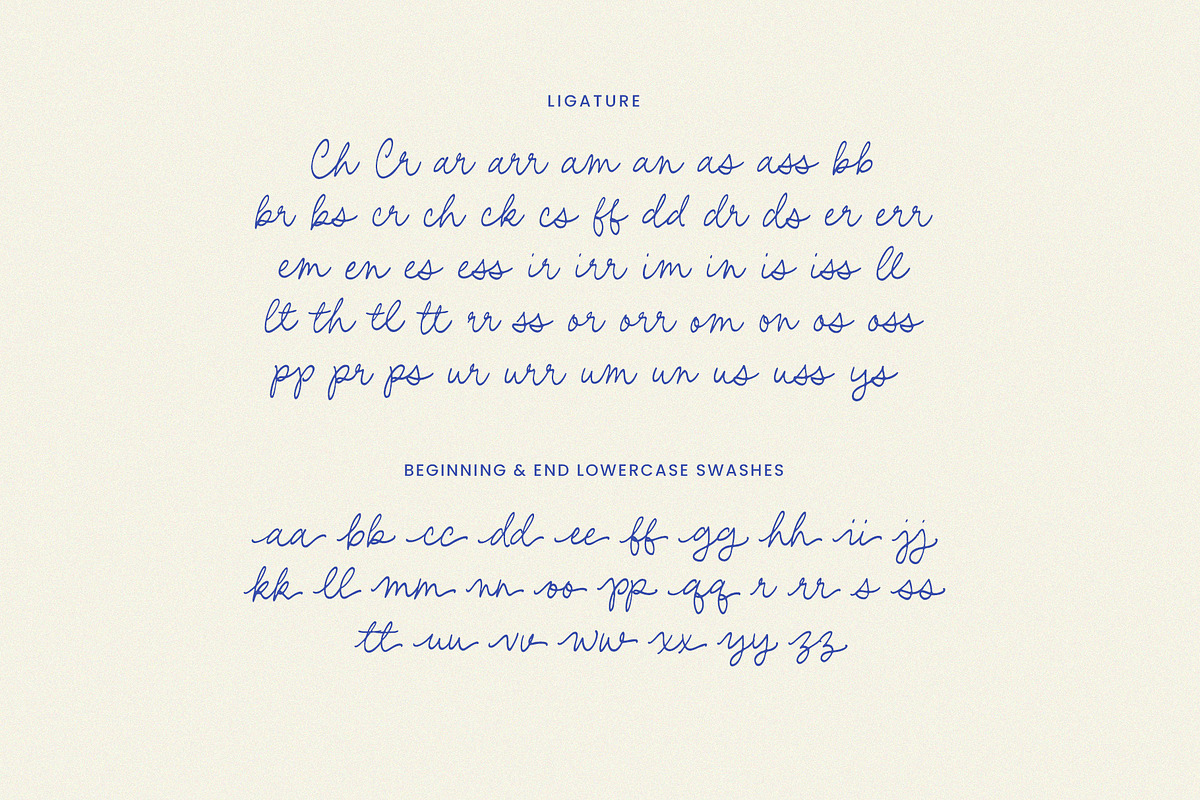 LIGATURE
Ch Cr ar arr am an as ass bb
br bs cr ch ck cs ff dd dr ds er err
em en es ess ir irr im in is iss ll
lt th tl tt rr ss or orr om on os oss
pp pr ps ur urr um un us uss ys
BEGINNING & END LOWERCASE SWASHES
aa bb cc dd ee ff gg hh ii jj
kk ll mm nn oo pp qq r rr s ss
tt uu vv ww xx yy zz